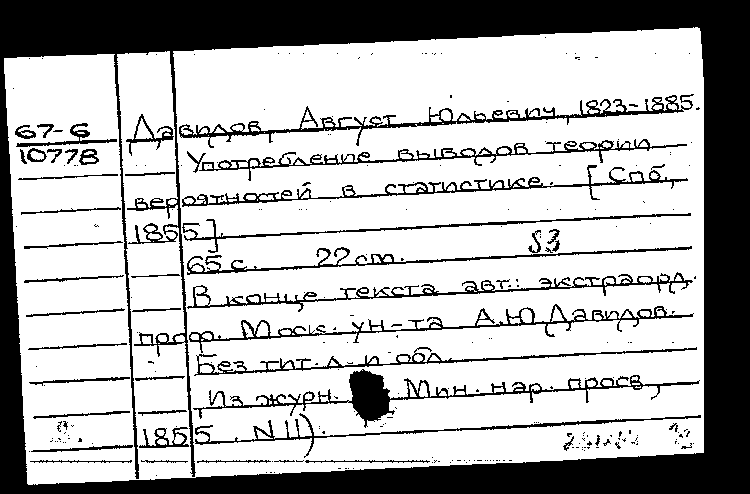 67-6 Давидов, Август Юльевич, 1823-1885.
10778 Употребление выводов теории
вероятностей в статистике. [Спб.,
1855].
65 с. 22 cm. S3
В конце текста авт.: экстраорд.
проф. Моск. ун-та А.Ю. Давидов.
Без тит. л. и обл.
Из журн. Мин. нар. просв.,
1855. N 11).